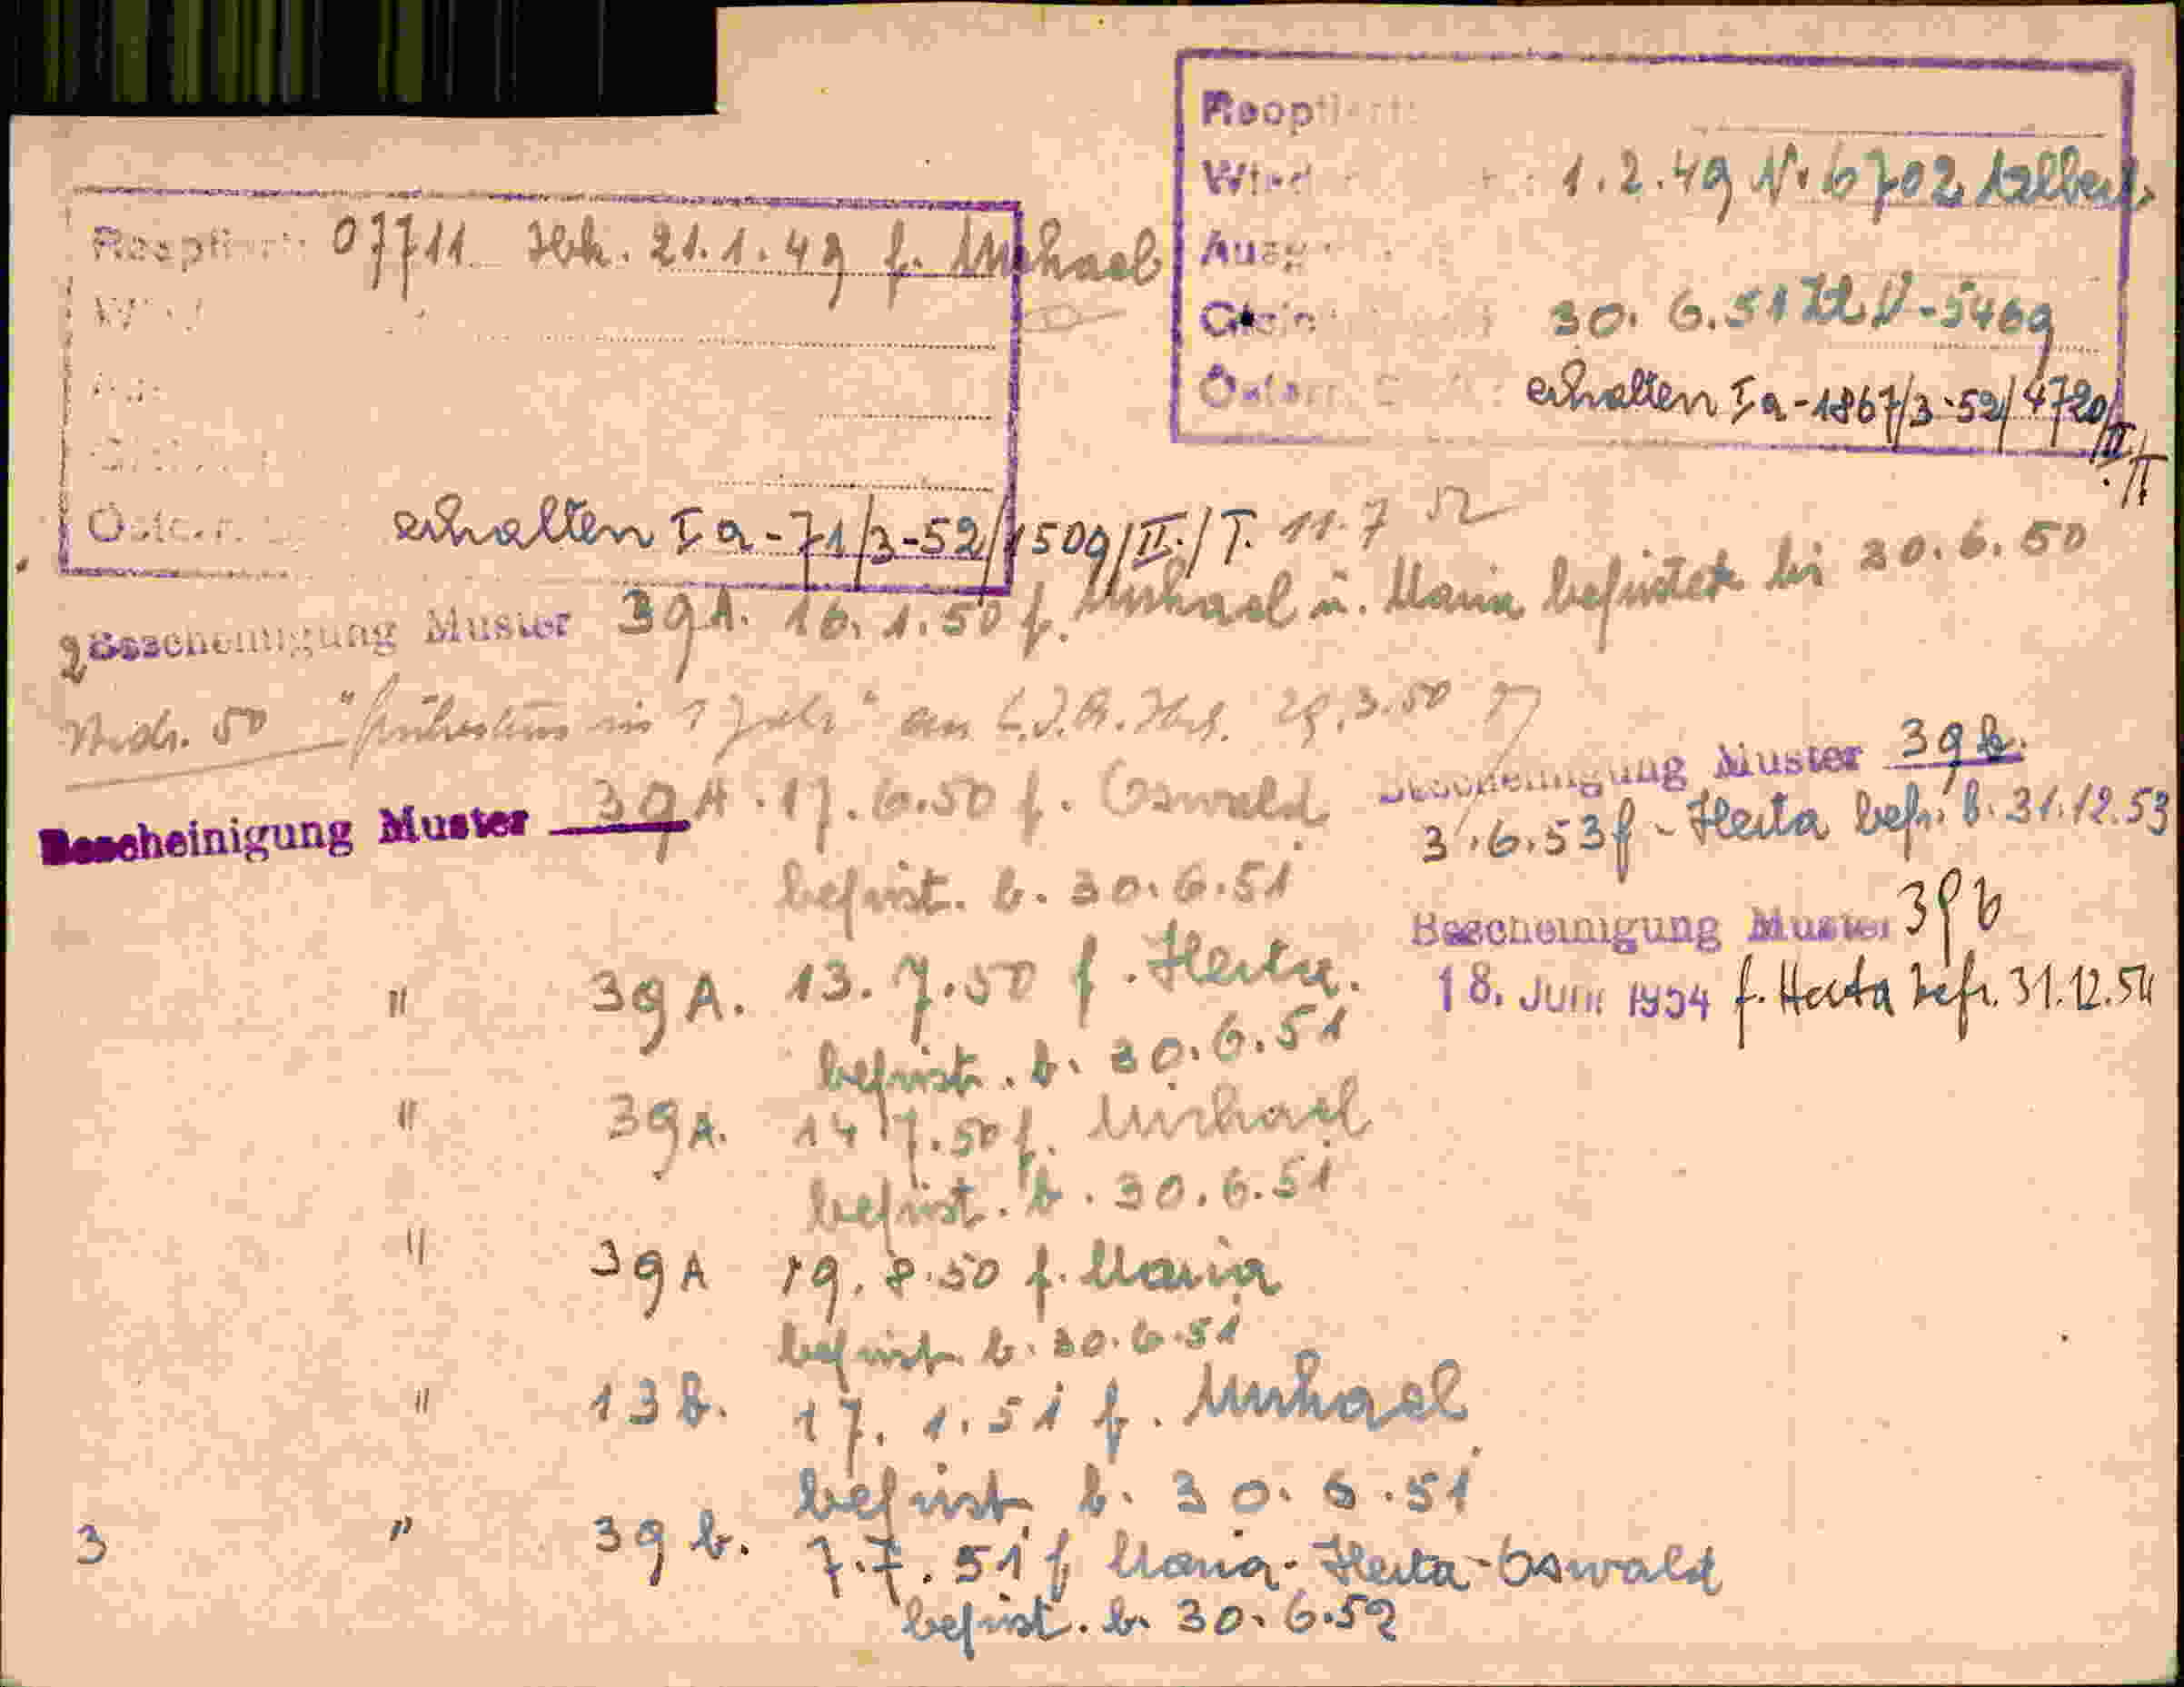 Reoptiert: 07711 sch. 21.1.49 f. Michael
erhalten Ia-71/3-52/1509/II./T. 11.7 52
Reoptiert:
1.2.49 N. 6702
30. 6.51
erhalten Ia-1867/3-52/4720/II./T
Bescheinigung Muster 39A. 16.1.50 f. Michael u. Maria befristet bis 30.6.50
50 " in 1 Jahr" an 29.3.50
Bescheinigung Muster 39A. 17.6.50 f. Oswald
befrist. b. 30.6.51
" 39A. 13.7.50 f. Herta.
befrist. b. 30.6.51
" 39A. 14.7.50 f. Michael
befrist. b. 30.6.51
" 39A 19.8.50 f. Maria
befrist. b. 30.6.51
" 13b. 17.1.51 f. Michael
befrist. b. 30.6.51
3 " 39b. 7.7.51 f Maria-Herta-Oswald
befrist. b. 30.6.52
Bescheinigung Muster 39b.
3.6.53 f. Herta bef. b. 31.12.53
Bescheinigung Muster 39b
18. Juni 1954 f. Herta befr. 31.12.54